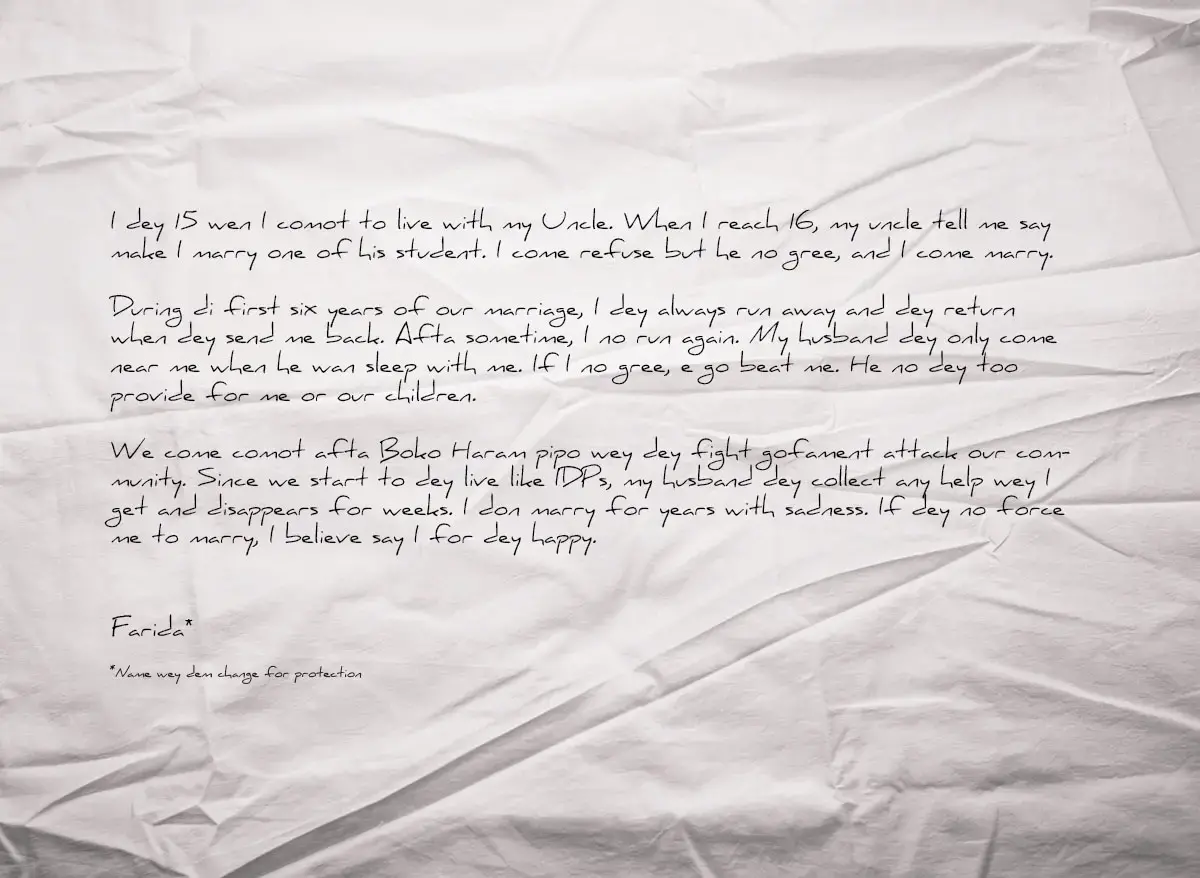 I dey 15 wen I comot to live with my Uncle. When I reach 16, my uncle tell me say
make I marry one of his student. I come refuse but he no gree, and I come marry.
During di first six years of our marriage, I dey always run away and dey return
when dey send me back. Afta sometime, I no run again. My husband dey only come
near me when he wan sleep with me. If I no gree, e go beat me. He no dey too
provide for me or our children.
We come comot afta Boko Haram pipo wey dey fight gofament attack our com-
munity. Since we start to dey live like IDPs, my husband dey collect any help wey I
get and disappears for weeks. I don marry for years with sadness. If dey no force
me to marry, I believe say I for dey happy.
Farida*
*Name wey dem change for protection